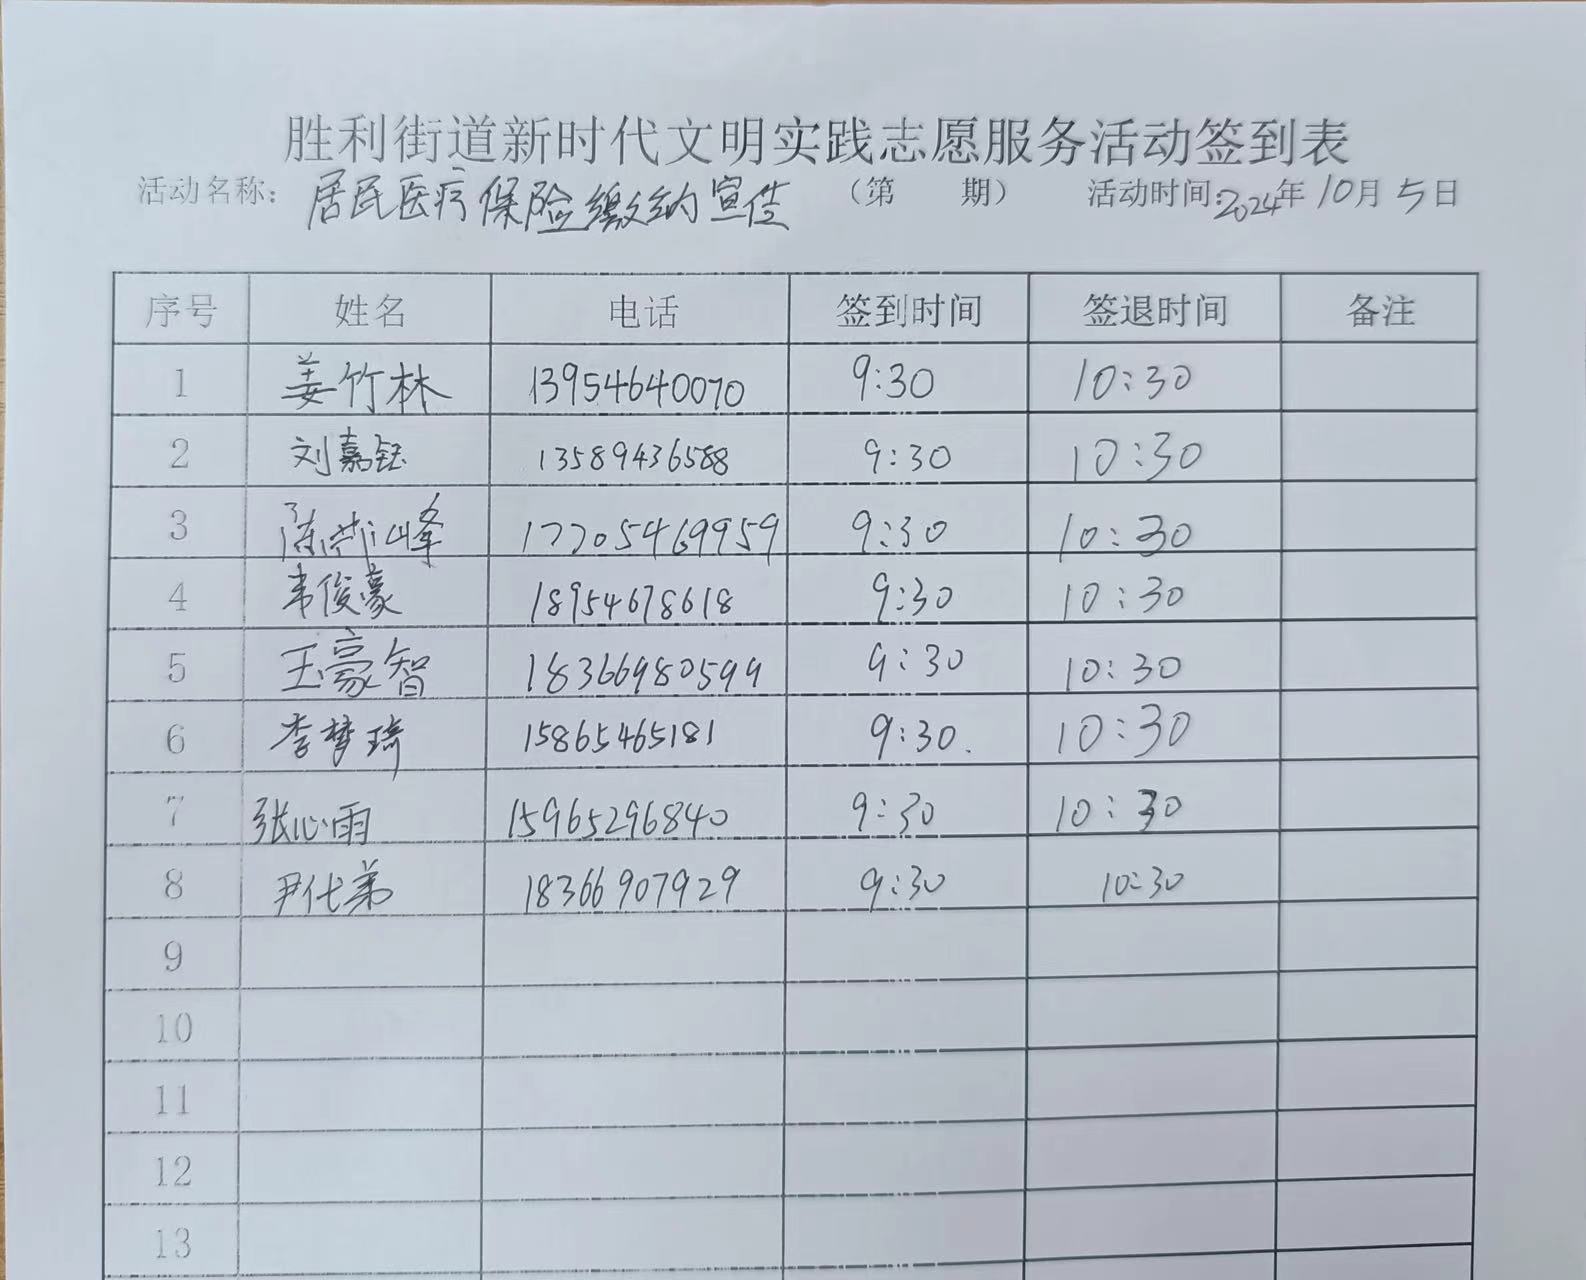 胜利街道新时代文明实践志愿服务活动签到表
活动名称：居民医疗保险缴纳宣传 （第 期） 活动时间：2024年10月5日
序号 姓名 电话 签到时间 签退时间 备注
1 姜竹林 13954640070 9:30 10:30
2 刘嘉钰 13589436588 9:30 10:30
3 陈 峰 17705469959 9:30 10:30
4 韦俊豪 18954678618 9:30 10:30
5 王豪智 18366980599 9:30 10:30
6 李梦琦 15865465181 9:30. 10:30
7 张心雨 15965296840 9:30 10:30
8 尹代弟 18366907929 9:30 10:30
9
10
11
12
13